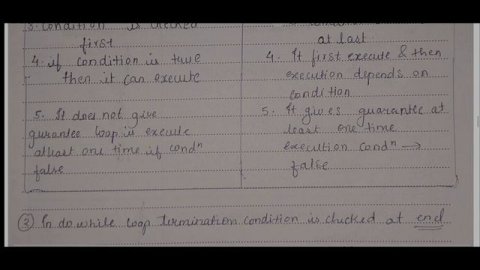 3. condition is checked
first
4. if condition is true
then it can execute
5. It does not give
gurantee loop is execute
atleast one time if condⁿ
false
at last
4. It first execute & then
execution depends on
condition
5. It gives guarantee at
least one time
execution condⁿ →
false
③ In do while loop termination condition is checked at end